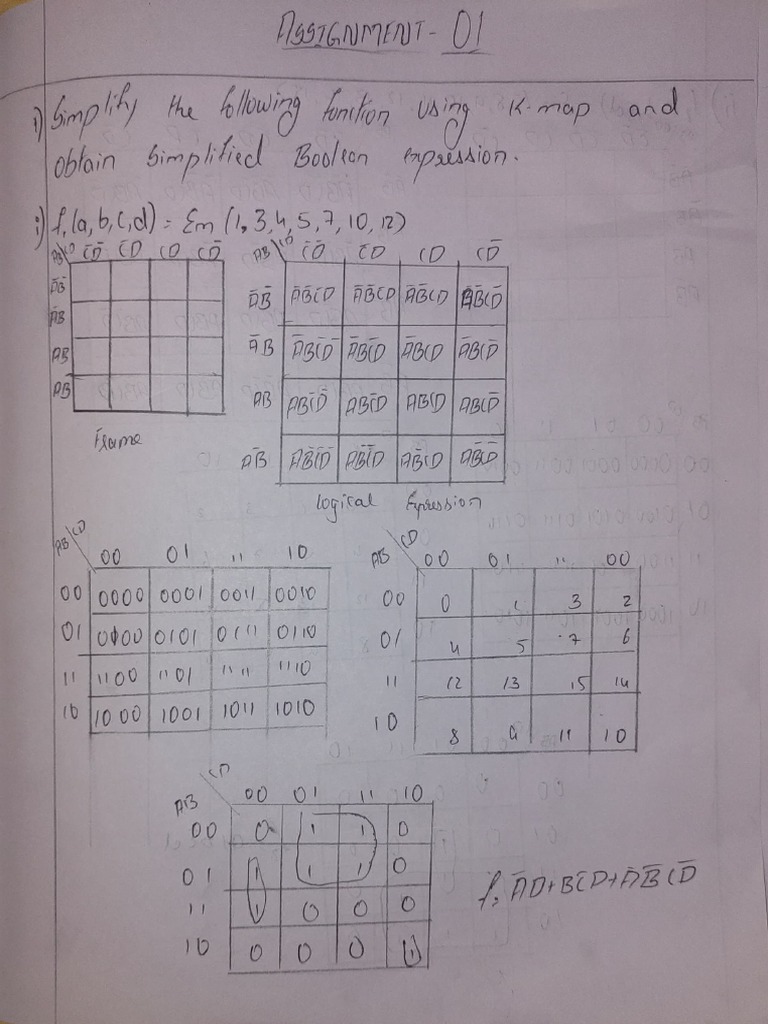 ASSIGNMENT - 01
i) Simplify the following function using K-map and
obtain Simplified Boolean expression.
i) f₁(a,b,c,d) = Σm (1, 3, 4, 5, 7, 10, 12)
AB\CD C̄D̄ C̄D CD CD̄
ĀB̄
ĀB
AB
AB̄
Frame
AB\CD C̄D̄ C̄D CD CD̄
ĀB̄ ĀB̄C̄D̄ ĀB̄C̄D ĀB̄CD ĀB̄CD̄
ĀB ĀBC̄D̄ ĀBC̄D ĀBCD ĀBCD̄
AB ABC̄D̄ ABC̄D ABCD ABCD̄
AB̄ AB̄C̄D̄ AB̄C̄D AB̄CD AB̄CD̄
Logical Expression
AB\CD 00 01 11 10
00 0000 0001 0011 0010
01 0100 0101 0111 0110
11 1100 1101 1111 1110
10 1000 1001 1011 1010
AB\CD 00 01 11 00
00 0 1 3 2
01 4 5 7 6
11 12 13 15 14
10 8 9 11 10
AB\CD 00 01 11 10
00 0 1 1 0
01 1 1 1 0
11 1 0 0 0
10 0 0 0 1
f₁ ĀD+BC̄D̄+AB̄CD̄